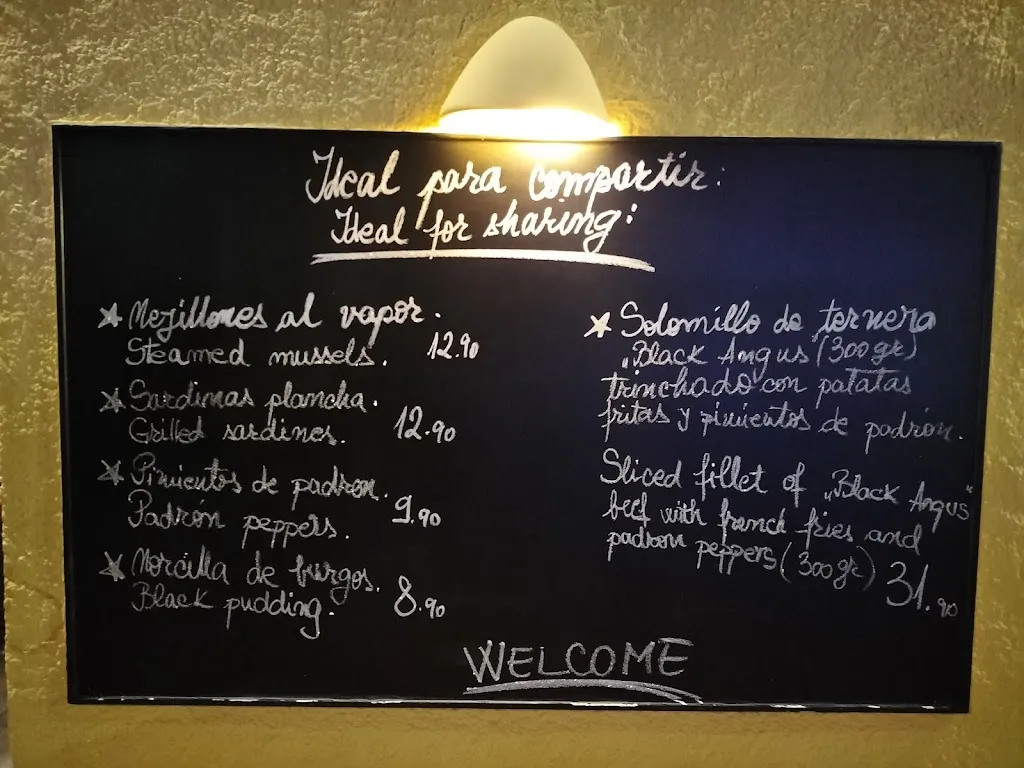 Ideal para compartir:
Ideal for sharing:
Mejillones al vapor.
Steamed mussels. 12.90
Sardinas plancha.
Grilled sardines. 12.90
Pimientos de padron.
Padrón peppers. 9.90
Morcilla de burgos.
Black pudding. 8.90
Solomillo de ternera
„Black Angus" (300gr)
trinchado con patatas
fritas y pimientos de padrón.
Sliced fillet of „Black Angus"
beef with french fries and
padron peppers (300gr) 31.90
WELCOME